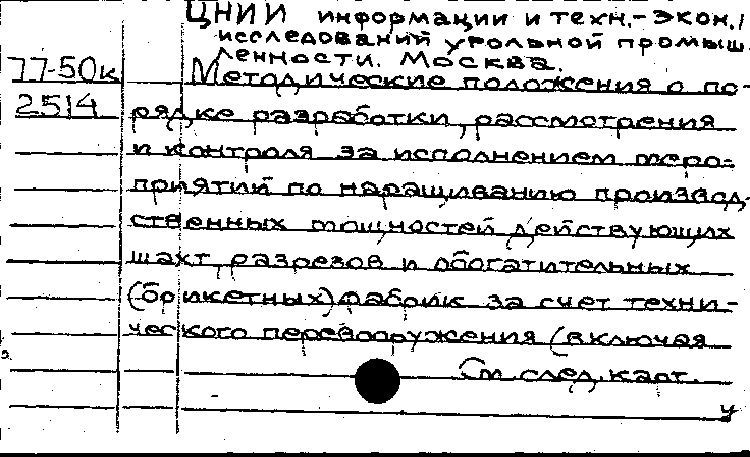 ЦНИИ информации и техн.-экон.
исследований угольной промыш-
ленности. Москва.
77-50к Методические положения о по-
2514 рядке разработки, рассмотрения
и контроля за исполнением меро-
приятий по наращиванию производ-
ственных мощностей действующих
шахт, разрезов и обогатительных
(брикетных) фабрик за счет техни-
ческого перевооружения (включая
См. след. карт.
У